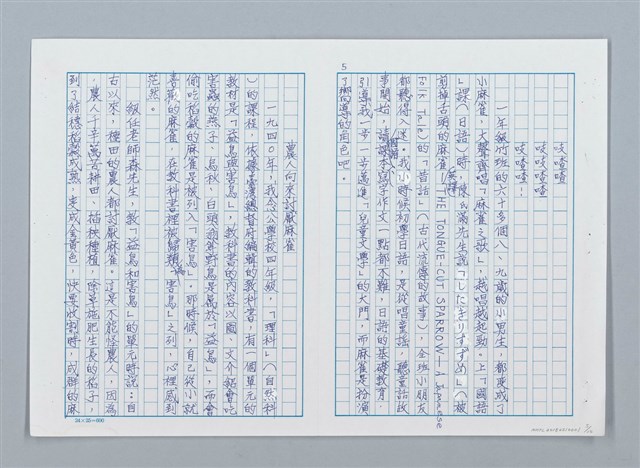 5
吱喳喳──
吱喳喳──
吱喳喳──!
一年級竹班的六十多個八、九歲的小男生,都變成了
小麻雀,大聲齊唱「麻雀之歌」,越唱越起勁。上「國語
」課(日語)時,陳氏滿先生說「したきりすずめ」(被
剪掉舌頭的麻雀──英譯THE TONGUE-CUT SPARROW──A Japanese
Folk Tale)的「昔話」(古代流傳的故事),全班小朋友
都聽得入迷。我小時候初學日語,是從唱童謠,聽童話故
事開始,讀課本寫字作文一點都不難,日語的基礎教育,
引導我一步一步邁進「兒童文學」的大門,而麻雀是扮演
了嚮導的角色吧。
農人向來討厭麻雀
一九四○年,我念公學校四年級,「理科」(自然科
)的課程,依臺灣總督府編輯的教科書,有一個單元的
教材是「益鳥與害鳥」,教科書的內容以圖、文介紹會吃
害蟲的燕子、烏秋、白頭翁等野鳥是屬於「益鳥」,而會
偷吃稻穀的麻雀是被列入「害鳥」。那時候,自己從小就
喜歡的麻雀,在教科書裡被歸類為「害鳥」之列,心裡感到
茫然。
級任老師森先生,教「益鳥和害鳥」的單元時說:自
古以來,種田的農人都討厭麻雀。這是不能怪農人,因為
,農人千辛萬苦耕田、插秧種植,除草施肥生長的稻子,
到了結穗稻穀成熟,變成金黃色,快要收割時,成群的麻
24×25=600